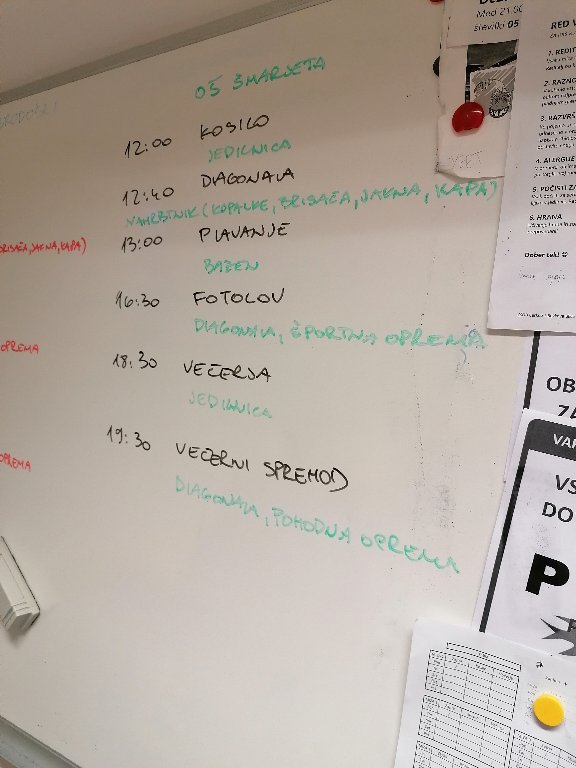 05 ŠMARJETA
12:00 KOSILO
JEDILNICA
12:40 DIAGONALA
NAHRBTNIK (KOPALKE, BRISAČA, JAKNA, KAPA)
13:00 PLAVANJE
BAZEN
16:30 FOTOLOV
DIAGONALA, ŠPORTNA OPREMA
18:30 VEČERJA
JEDILNICA
19:30 VEČERNI SPREHOD
DIAGONALA, POHODNA OPREMA
BRISAČA, JAKNA, KAPA)
OPREMA
OPREMA
RED V
4. ALERGIJE
6. HRANA
Dober tek!
OB
ZA
VS
DO
P